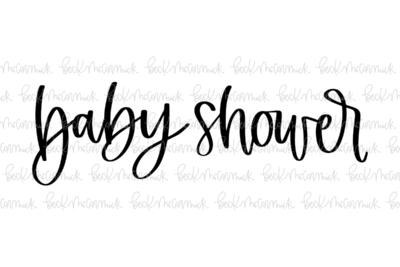 baby shower